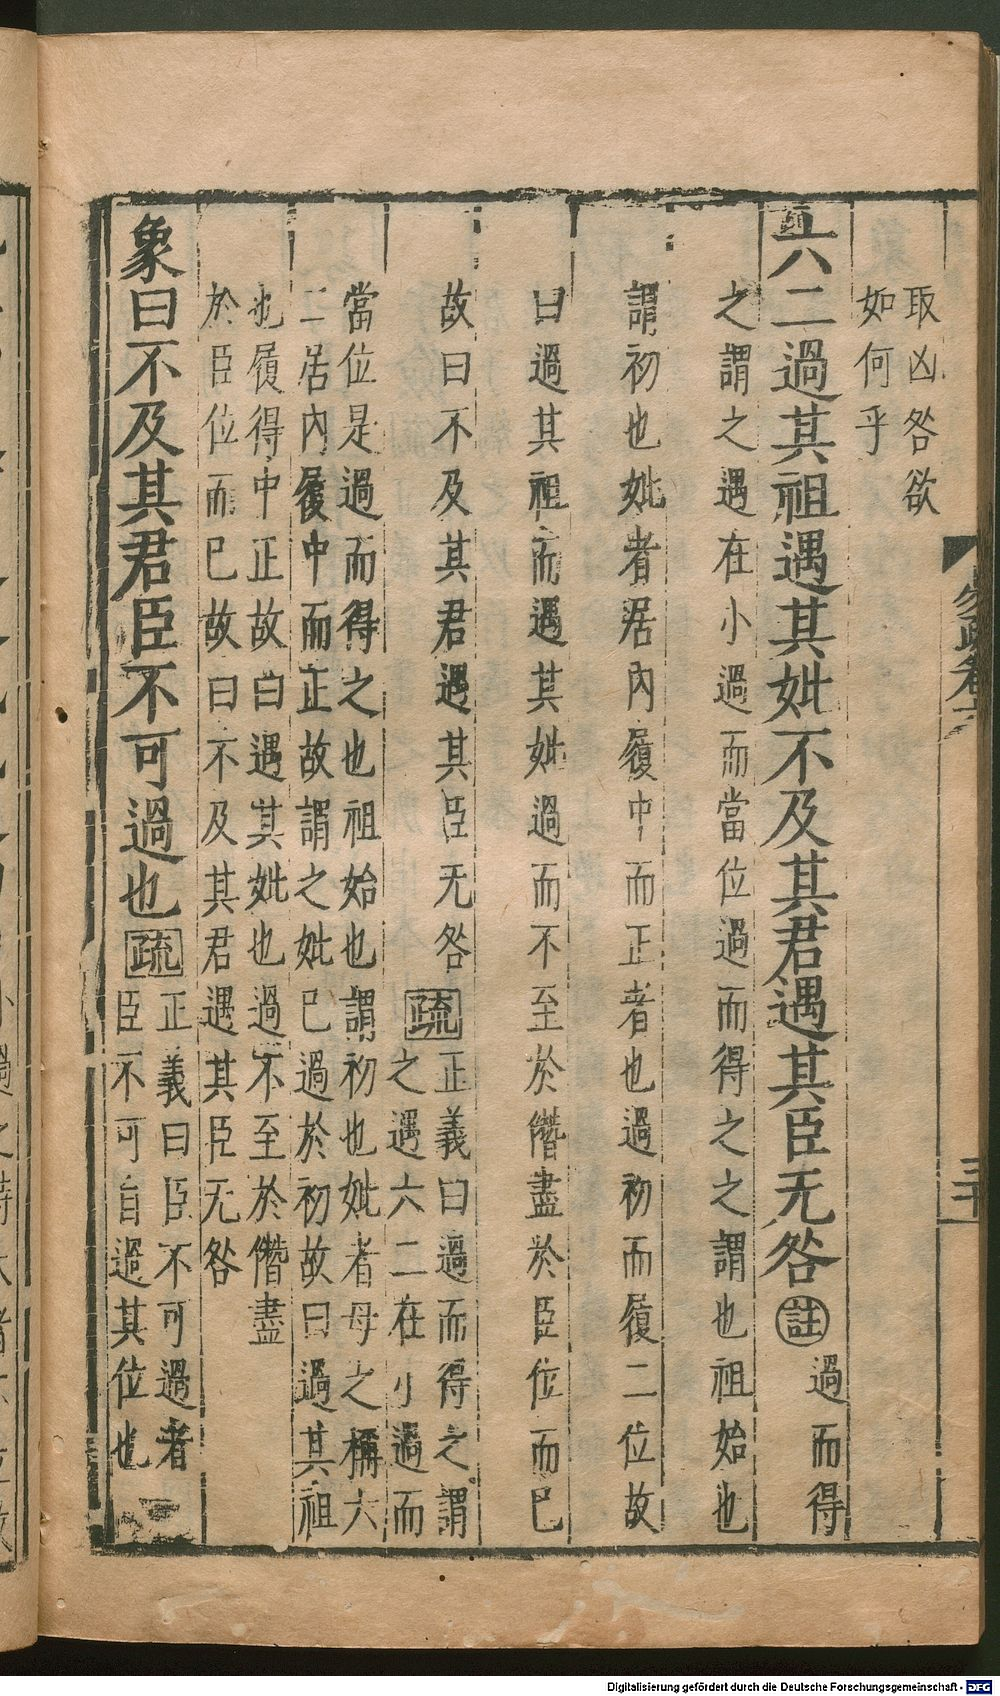 取凶咎欲
如何乎
六二過其祖遇其妣不及其君遇其臣无咎註過而得
之謂之遇在小過而當位過而得之之謂也祖始也
謂初也妣者居內履中而正者也過初而履二位故
曰過其祖而遇其妣過而不至於僭盡於臣位而已
故曰不及其君遇其臣无咎疏正義曰過而得之謂
之遇六二在小過而
當位是過而得之也祖始也謂初也妣者母之稱六
二居內履中而正故謂之妣已過於初故曰過其祖
也履得中正故曰遇其妣也過不至於僭盡
於臣位而已故曰不及其君遇其臣无咎
象曰不及其君臣不可過也疏正義曰臣不可過者
臣不可自過其位也
Digitalisierung gefördert durch die Deutsche Forschungsgemeinschaft - DFG